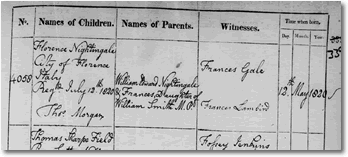 Nº.
Names of Children.
Names of Parents.
Witnesses.
Time when born.
Day
Month
Year
4058
Florence Nightingale
City of Florence
Italy
July 12th 1820
Thos. Morgan
William Edward Nightingale
& Frances, Daughter of
William Smith M.P.
Frances Gale
Frances
12th
May
1820
Thomas Sharpe Field
Jenkins